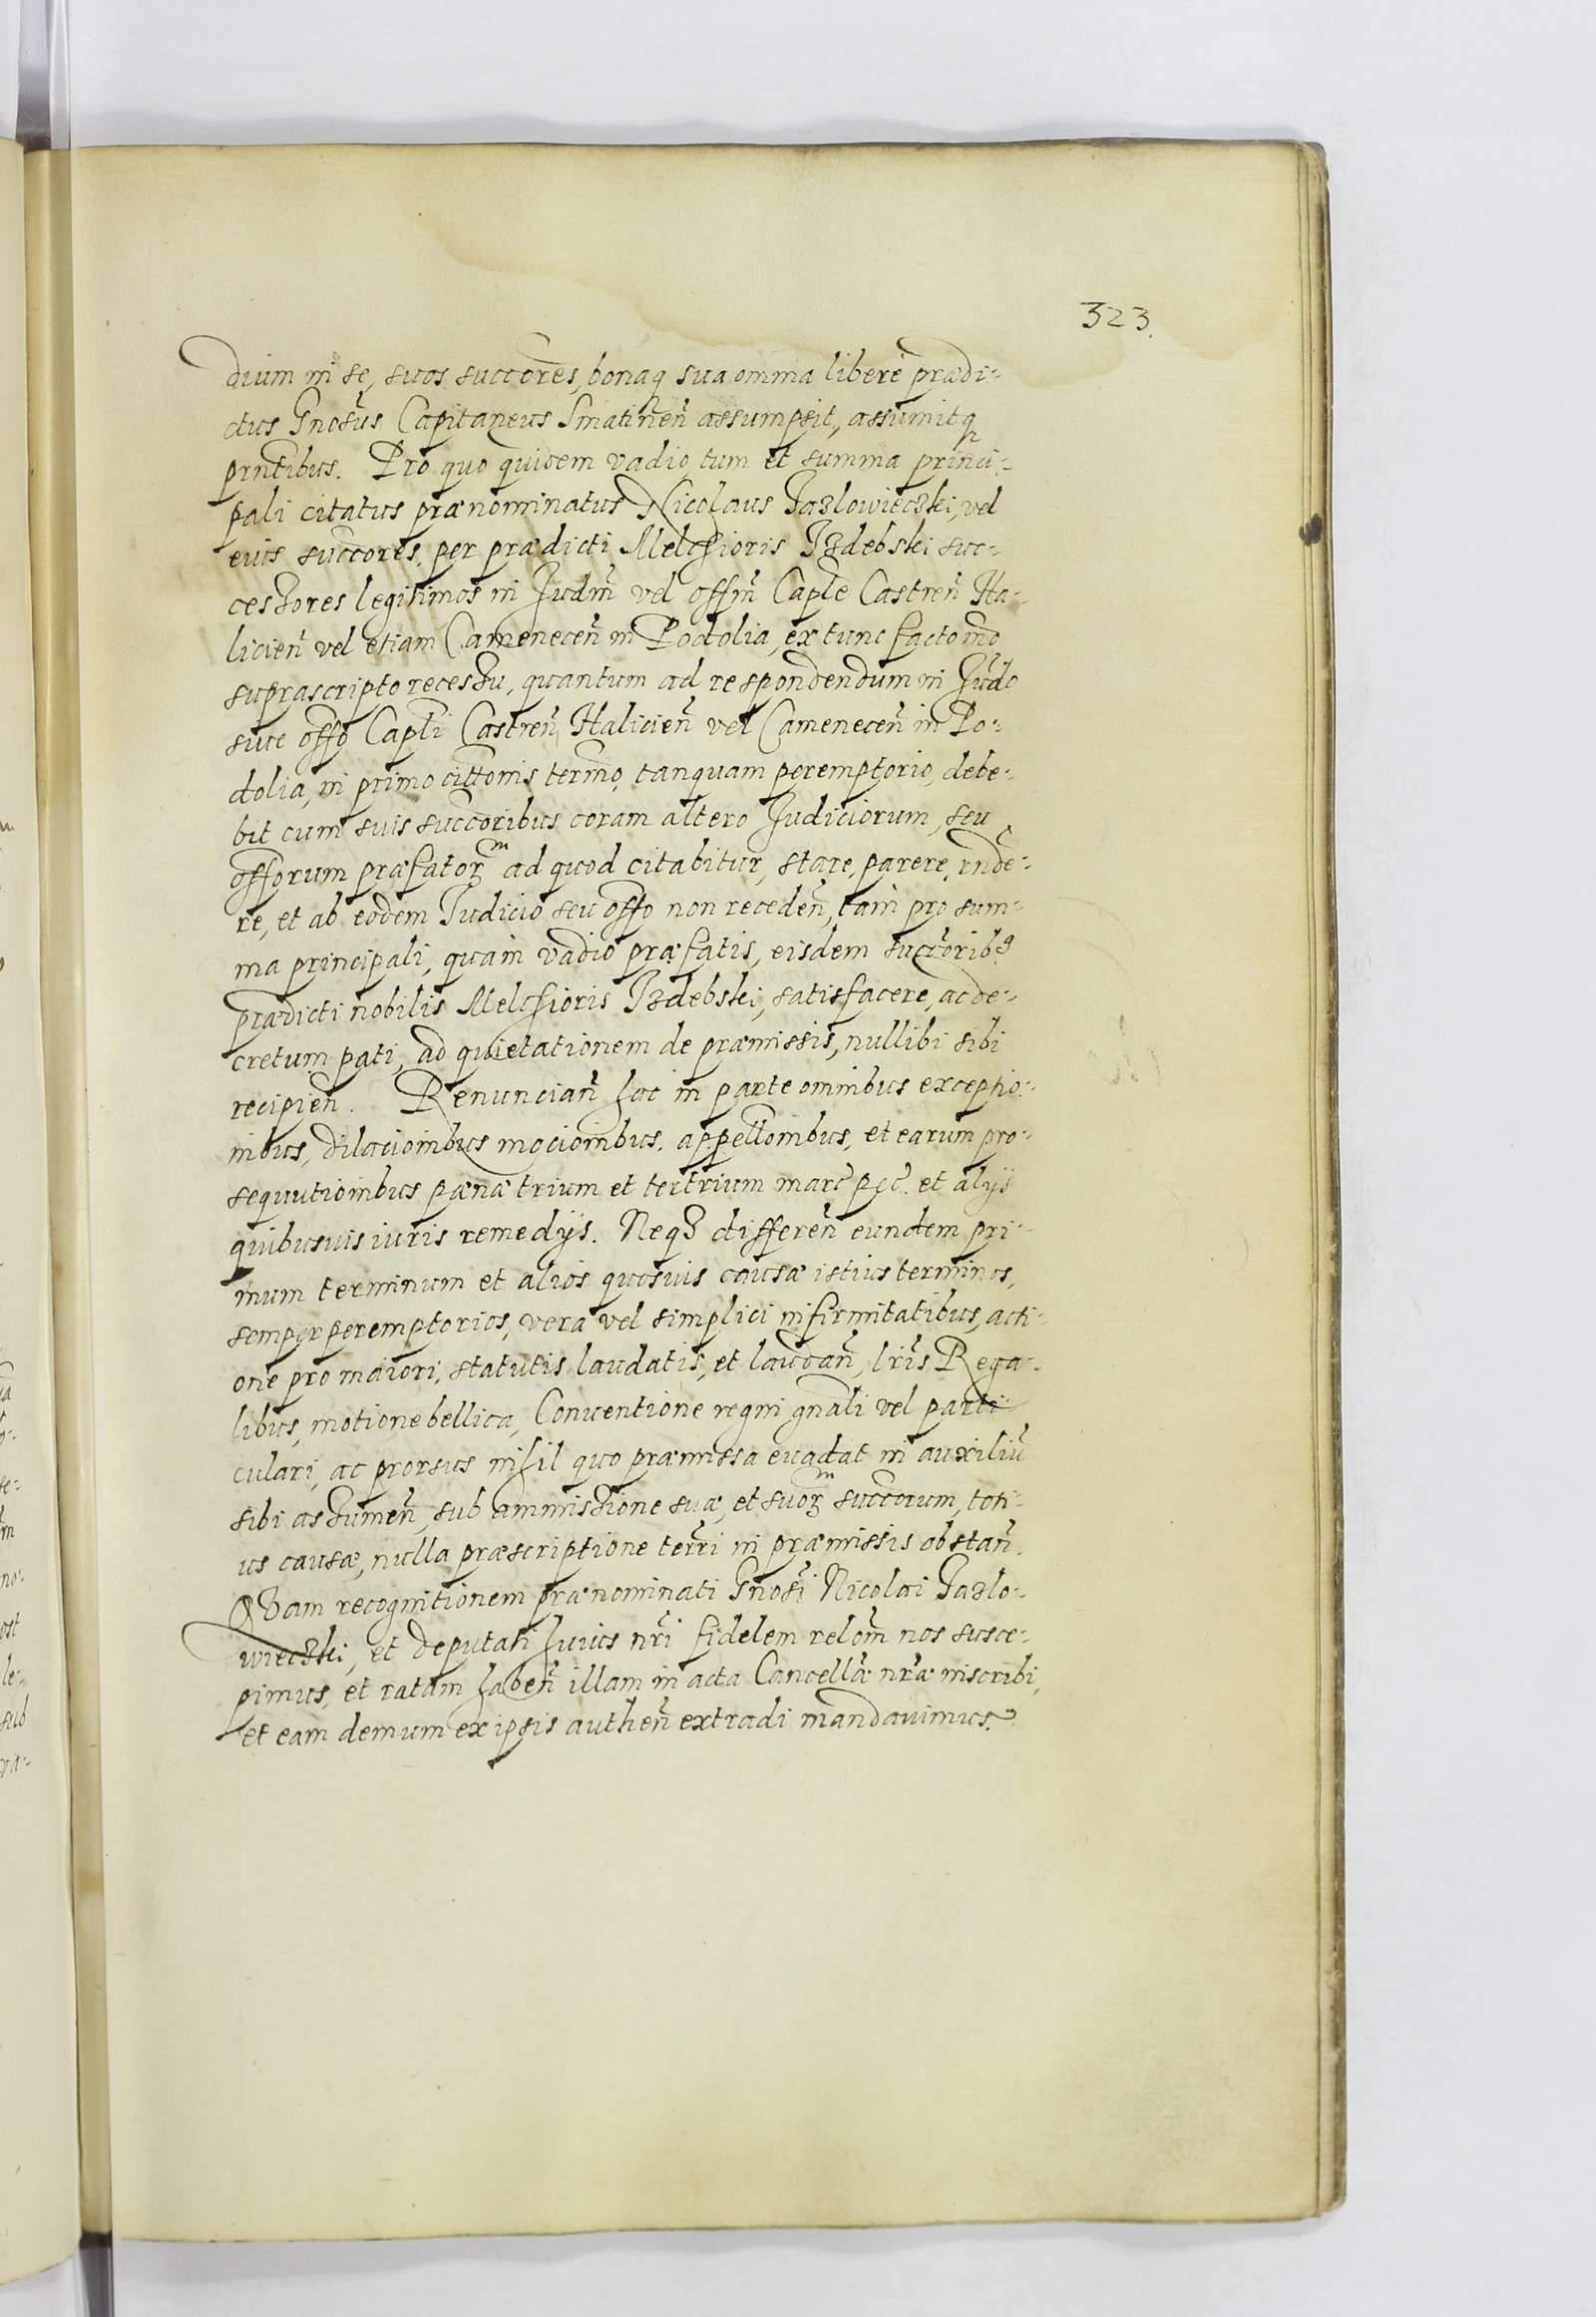 323.
dium in se, suos succores, bonaq sua omnia libere prædi-
ctus Gnosus Capitaneus Sniatinen assumpsit, assumitq
prntibus. Pro quo quidem vadio, tum et summa princi-
pali citatus prænominatus Nicolaus Jazlowieczki, vel
eius succores, per prædicti Melchioris Izdebski suc-
cessores legitimos in Judm vel offm Caple Castren Ha-
licien vel etiam Camenecen in Podolia, ex tunc facto mo
suprascripto recessu, quantum ad respondendum in Judo
siue offo Capli Castren Halicien vel Camenecen in Po-
dolia, in primo cittonis termo, tanquam peremptorio, debe-
bit cum suis succoribus coram altero Judiciorum, seu
offorum præfatorm ad quod citabitur, stare, parere, rnde-
re, et ab eodem Judicio seu offo non receden, tam pro sum-
ma principali, quam vadio præfatis, eisdem succorib9
prædicti nobilis Melchioris Izdebski, satisfacere, ac de-
cretum pati, ad quietationem de præmissis, nullibi sibi
recipien. Renuncian hac in parte omnibus exceptio-
nibus, dilacioinbus mocioinbus, appellonibus, et earum pro-
sequutioinbus pænæ trium et tertrium marc pec. et alijs
quibusuis iuris remedijs. Neq3 differen eundem pri-
mum terminum et alios quosuis causæ istius terminos,
semper peremptorios, vera vel simplici infirmitatibus, acti-
one pro maiori, statutis laudatis, et laudan, lris Rega-
libus, motione bellica, Conuentione regni gnali vel parti
culari, ac prorsus nihil quo præmissa euadat in auxiliu
sibi assumen, sub ammissione suæ, et suorm succorum, toti-
us causæ, nulla præscriptione terri in præmissis obstan.
Quam recognitionem prænominati Gnosi Nicolai Jazlo-
wieczki, et deputati huius nri fidelem relom nos susce-
pimus, et ratam haben illam in acta Cancellæ nræ inscribi,
et eam demum ex ipsis authen extradi mandauimus.